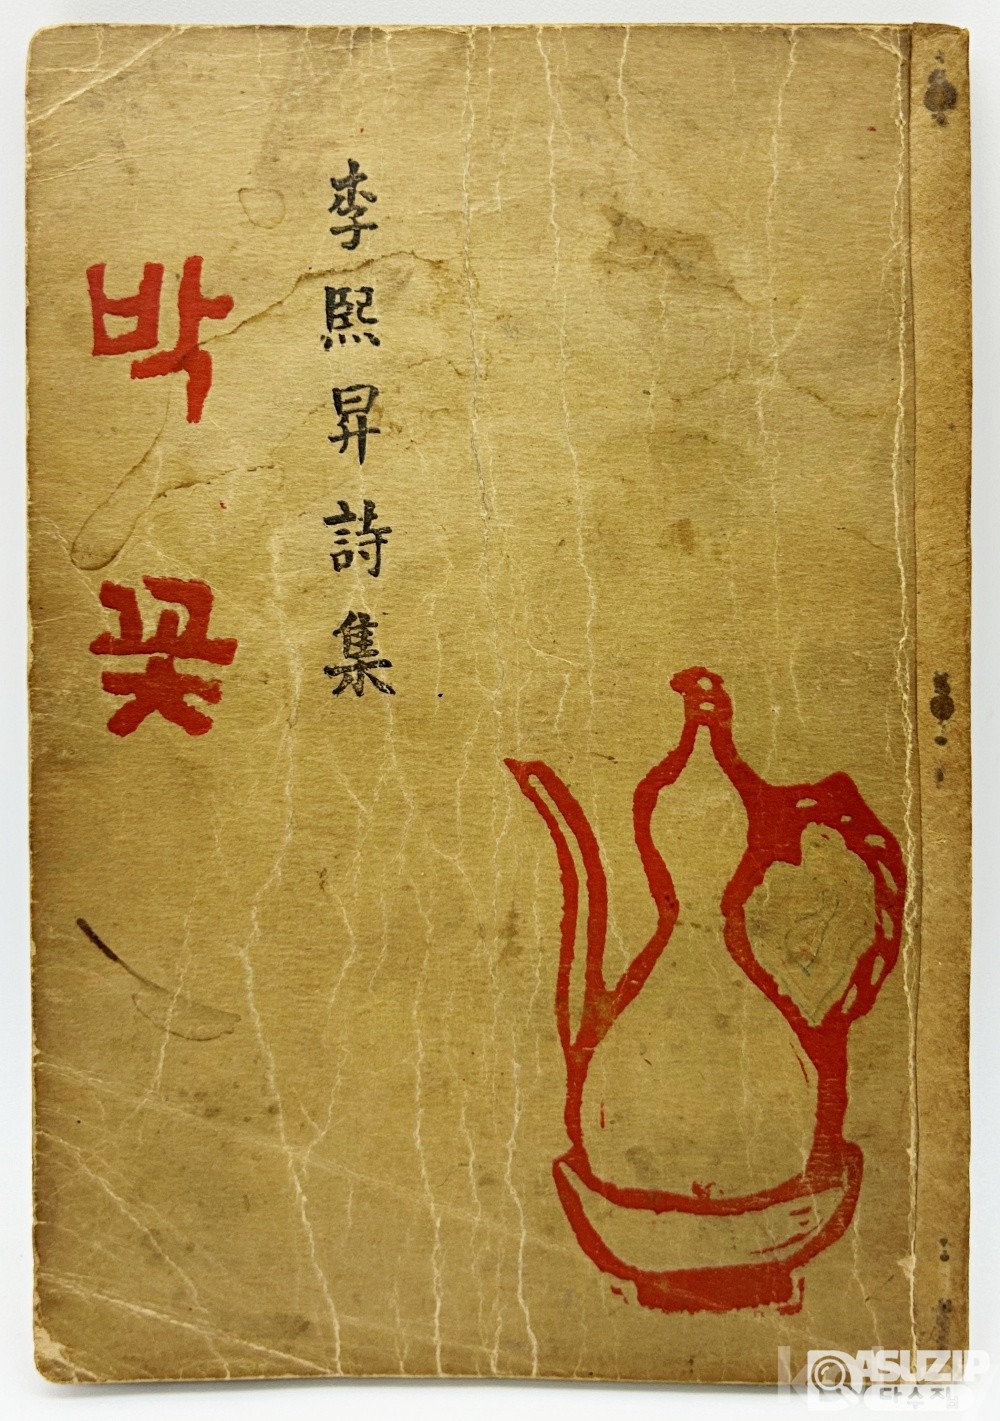 李熙昇詩集
박꽃
ASUZIP
다수집